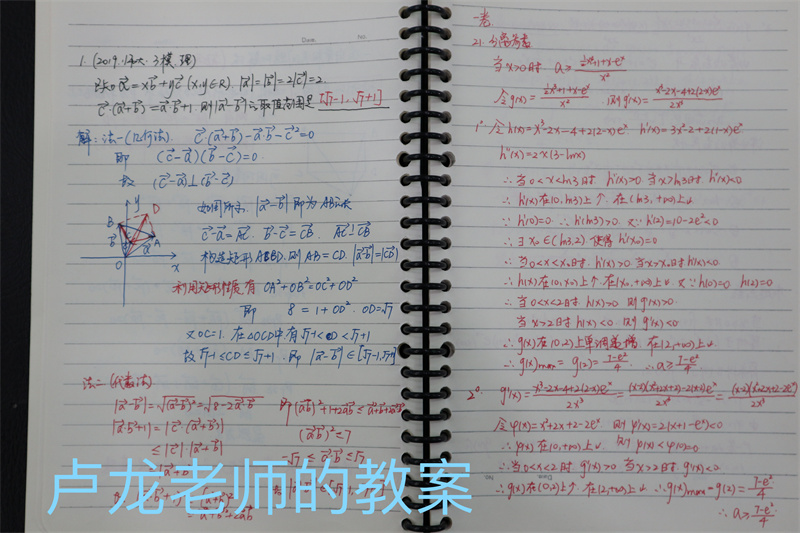 1. (2019. 师大. 3模. 理)
x\vec{b}+y\vec{c} (x,y∈R). |\vec{a}|=|\vec{b}|=2|\vec{c}|=2.
\vec{c}·(\vec{a}+\vec{b})=\vec{a}·\vec{b}+1 则|\vec{a}-\vec{b}|之取值范围是 [√7-1, √7+1]
解: 法一 (几何法). \vec{c}·(\vec{a}+\vec{b})-\vec{a}·\vec{b}-\vec{c}²=0
即 (\vec{c}-\vec{a})(\vec{b}-\vec{c})=0
故 (\vec{c}-\vec{a})⊥(\vec{b}-\vec{c})
如图所示. |\vec{a}-\vec{b}|即为AB之长
\vec{c}-\vec{a}=\vec{AC}. \vec{b}-\vec{c}=\vec{CB}. \vec{AC}⊥\vec{CB}
构造矩形ACBD. 则AB=CD. |\vec{a}-\vec{b}|=|\vec{CD}|
利用矩形性质有 OA²+OB²=OC²+OD²
即 8=1+OD². OD=√7
又OC=1. 在△OCD中有√7-1<CD<√7+1
故√7-1≤CD≤√7+1. 即 |\vec{a}-\vec{b}|∈[√7-1,√7+1]
y
D
B
A
C
O
x
法二 (代数法)
|\vec{a}-\vec{b}|=√(\vec{a}-\vec{b})²=√8-2\vec{a}·\vec{b}
|\vec{a}·\vec{b}+1|=|\vec{c}·(\vec{a}+\vec{b})|
≤|\vec{c}|·|\vec{a}+\vec{b}|
(\vec{a}·\vec{b})²≤7
-√7≤\vec{a}·\vec{b}≤√7
卢龙老师的教案
一卷
21. 分离参数
当x>0时. a≥(½x³+1+x-e^x)/x²
令g(x)=(½x³+1+x-e^x)/x² 则g'(x)=(x³-2x-4+2(2-x)e^x)/2x³
1° 令h(x)=x³-2x-4+2(2-x)e^x h'(x)=3x²-2+2(1-x)e^x
h''(x)=2x(3-lnx)
∴当0<x<ln3时 h''(x)>0 当x>ln3时 h''(x)<0
∴h'(x)在(0,ln3)上↑. 在(ln3,+∞)上↓
∵h'(0)=0. ∴h'(ln3)>0. 又∵h'(2)=10-2e²<0
∴∃x₀∈(ln3,2) 使得h'(x₀)=0
∴当0<x<x₀时. h'(x)>0 当x>x₀时 h'(x)<0
∴h(x)在(0,x₀)上↑. 在(x₀,+∞)上↓ 又∵h(0)=0 h(2)=0
∴当0<x<2时 h(x)>0 则g'(x)>0
当x>2时 h(x)<0 则g'(x)<0
∴g(x)在(0,2)上单调递增. 在(2,+∞)上↓
∴g(x)max=g(2)=(7-e²)/4. ∴a≥(7-e²)/4
2° g'(x)=(x³-2x-4+2(2-x)e^x)/2x³=(x-2)(x²+2x+2)-2(x-2)e^x/2x³=(x-2)(x²+2x+2-2e^x)/2x³
令φ(x)=x²+2x+2-2e^x 则φ'(x)=2(x+1-e^x)<0
∴φ(x)在(0,+∞)上↓ 则φ(x)<φ(0)=0
∴当0<x<2时 g'(x)>0 当x>2时 g'(x)<0
∴g(x)在(0,2)上↑. 在(2,+∞)上↓ ∴g(x)max=g(2)=(7-e²)/4
∴a≥(7-e²)/4